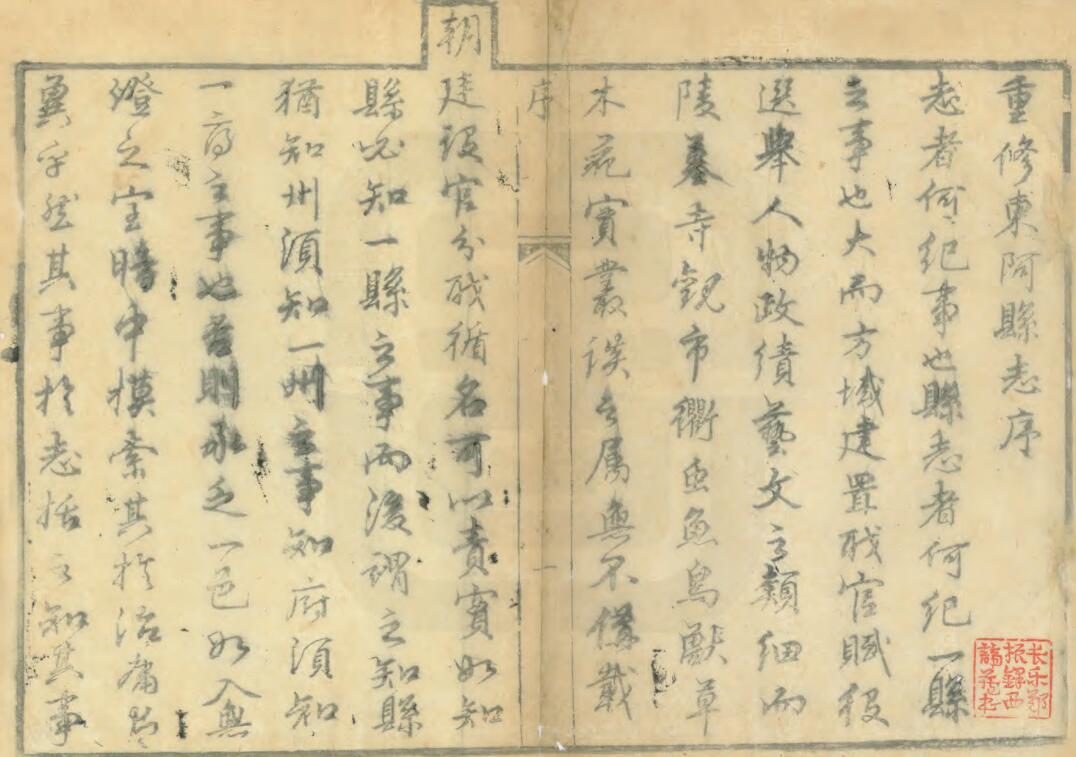 重修東阿縣志序
志者何紀事也縣志者何紀一縣
之事也大而方域建置職官賦役
選舉人物政績藝文之類細而
陵墓寺觀市衢虫魚鳥獸草
木實叢之属無不備載
序
一
朝
廷設官分職循名可以責實如知
縣必知一縣之事而後謂之知縣
猶知州須知一州之事知府須知
一府之事也否則承乏一邑如入無
燈之室暗中摸索其於治庸有
冀乎然其事於志括之知其事
长乐郑
振鐸西
諦藏书